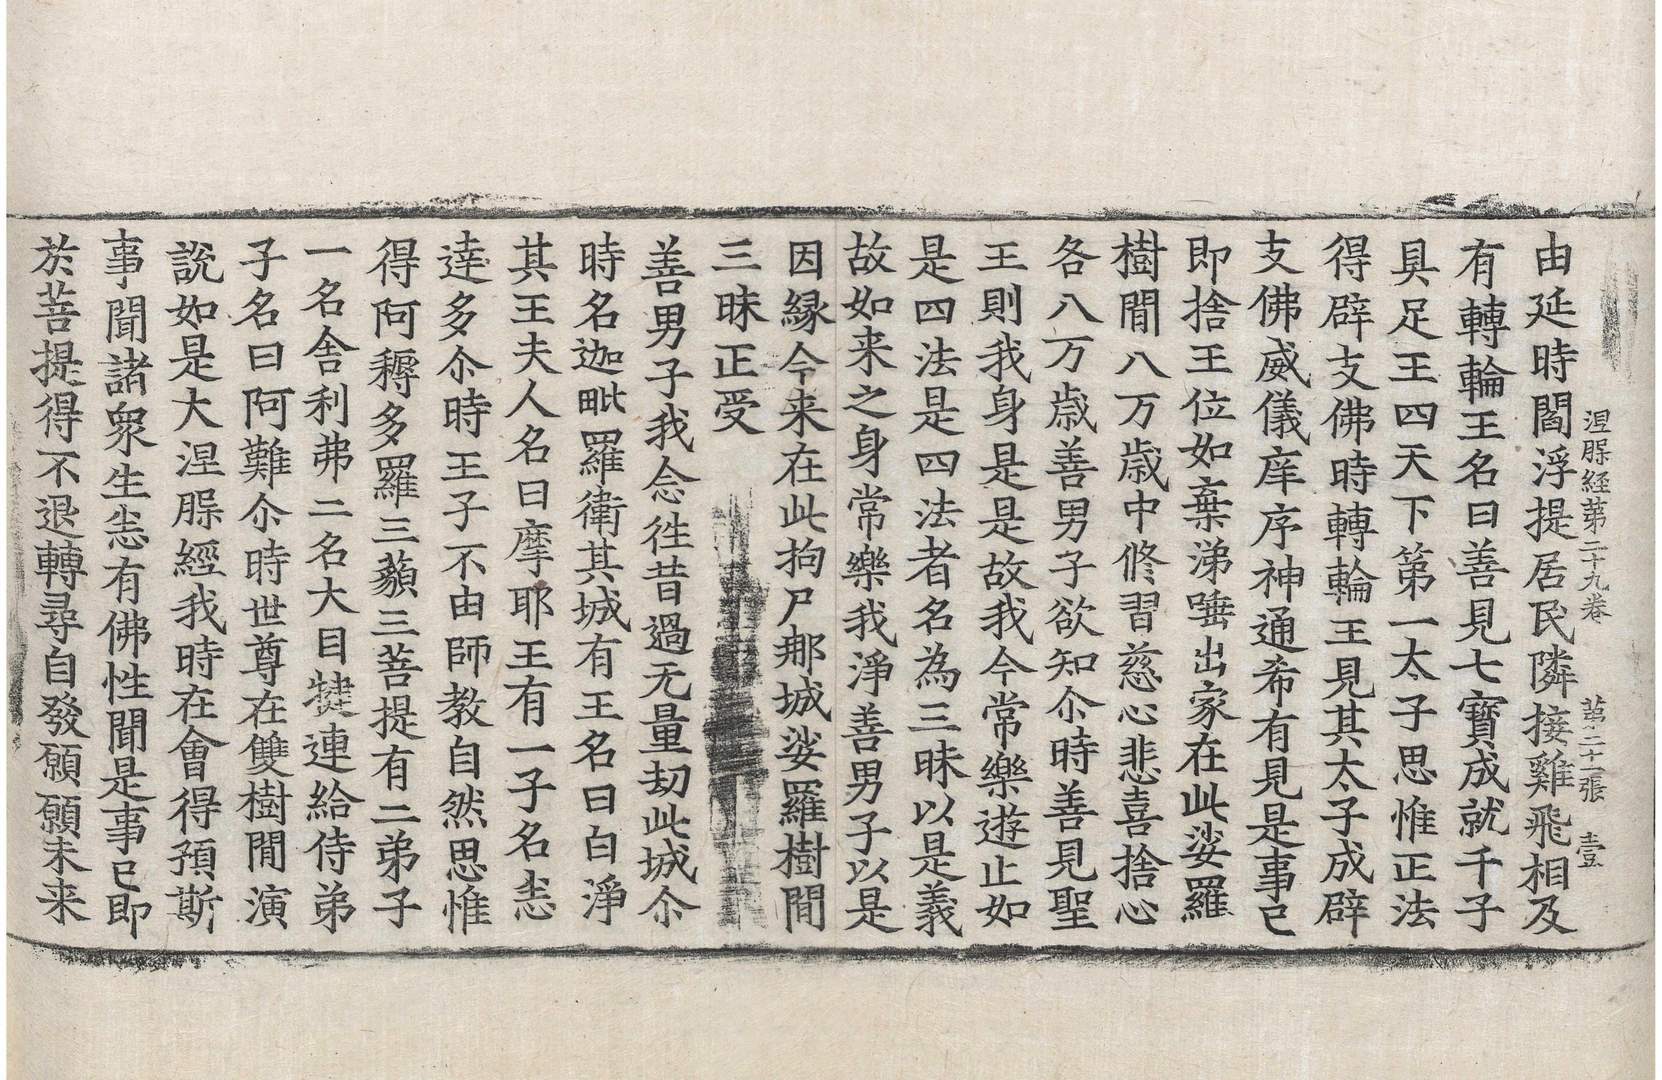 涅槃経第二十九卷 苐二十張 壹
由延時閻浮提居民隣接雞飛相及
有轉輪王名曰善見七寶成就千子
具足王四天下第一太子思惟正法
得辟支佛時轉輪王見其太子成辟
支佛威儀庠序神通希有見是事已
即捨王位如棄涕唾出家在此娑羅
樹間八万歲中修習慈心悲喜捨心
各八万歲善男子欲知尒時善見聖
王則我身是是故我今常樂遊止如
是四法是四法者名為三昧以是義
故如来之身常樂我淨善男子以是
因縁今来在此拘尸那城娑羅樹間
三昧正受
善男子我念徃昔過无量劫此城尒
時名迦毗羅衛其城有王名曰白淨
其王夫人名曰摩耶王有一子名悉
達多尒時王子不由師教自然思惟
得阿耨多羅三藐三菩提有二弟子
一名舍利弗二名大目犍連給侍弟
子名曰阿難尒時世尊在雙樹間演
說如是大涅槃經我時在會得預斯
事聞諸衆生悉有佛性聞是事已即
於菩提得不退轉尋自發願願未来